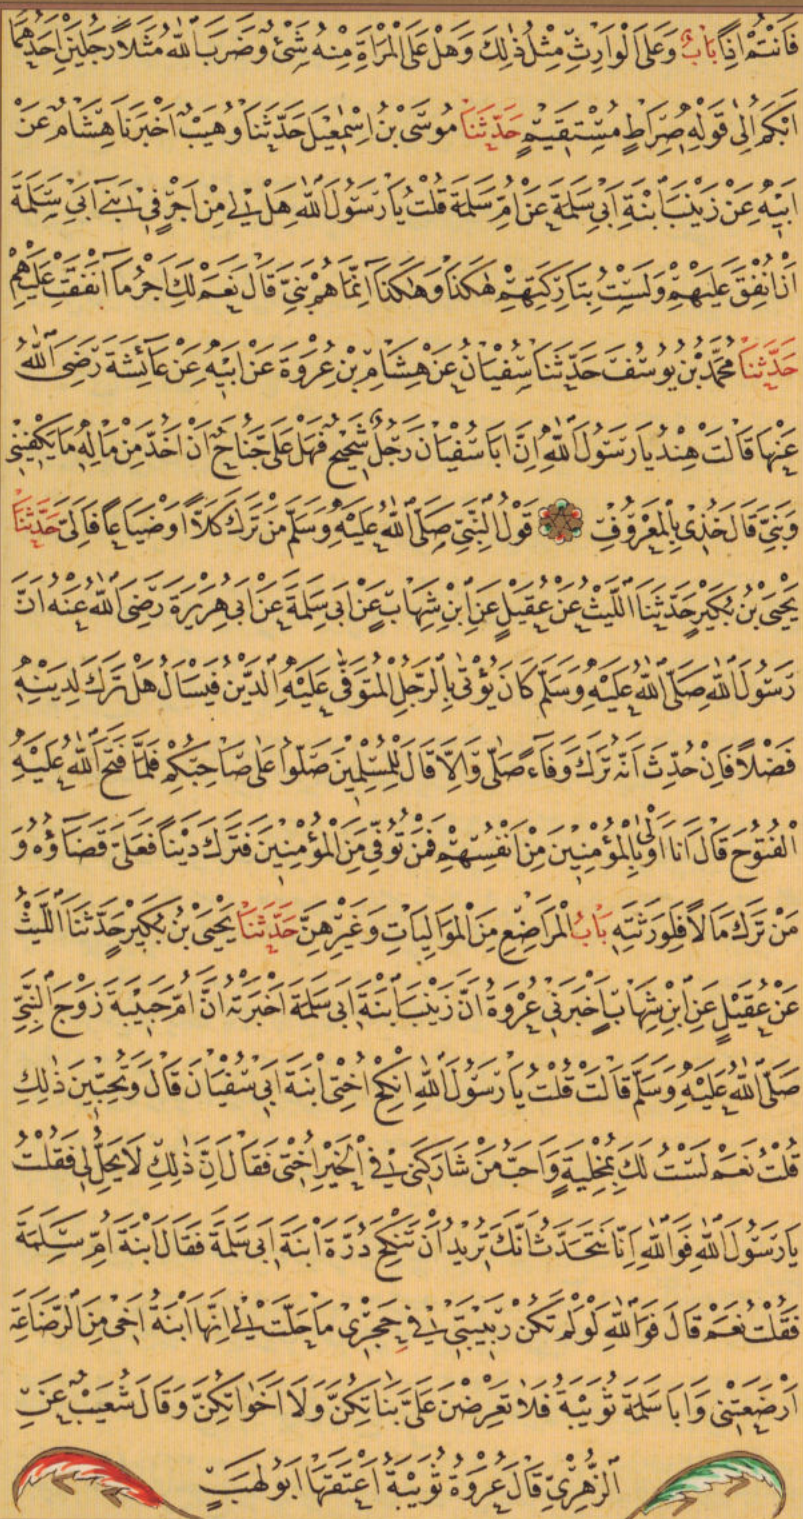 فَأَنْتُمْ اِذًا بَابٌ وَعَلَى الْوَارِثِ مِثْلُ ذٰلِكَ وَهَلْ عَلَى الْمَرْأَةِ مِنْهُ شَيْءٌ وَضَرَبَ اللّٰهُ مَثَلًا رَجُلَيْنِ اَحَدُهُمَا
اَبْكَمُ اِلَى قَوْلِهِ صِرَاطٍ مُسْتَقِيمٍ حَدَّثَنَا مُوسَى بْنُ اِسْمٰعِيلَ حَدَّثَنَا وُهَيْبٌ اَخْبَرَنَا هِشَامٌ عَنْ
اَبِيهِ عَنْ زَيْنَبَ ابْنَةِ اَبِي سَلَمَةَ عَنْ اُمِّ سَلَمَةَ قُلْتُ يَا رَسُولَ اللّٰهِ هَلْ لِي مِنْ اَجْرٍ فِي بَنِي اَبِي سَلَمَةَ
اَنْ اُنْفِقَ عَلَيْهِمْ وَلَسْتُ بِتَارِكَتِهِمْ هٰكَذَا وَهٰكَذَا اِنَّمَا هُمْ بَنِيَّ قَالَ نَعَمْ لَكِ اَجْرُ مَا اَنْفَقْتِ عَلَيْهِمْ
حَدَّثَنَا مُحَمَّدُ بْنُ يُوسُفَ حَدَّثَنَا سُفْيَانُ عَنْ هِشَامِ بْنِ عُرْوَةَ عَنْ اَبِيهِ عَنْ عَائِشَةَ رَضِيَ اللّٰهُ
عَنْهَا قَالَتْ هِنْدُ يَا رَسُولَ اللّٰهِ اِنَّ اَبَا سُفْيَانَ رَجُلٌ شَحِيحٌ فَهَلْ عَلَيَّ جُنَاحٌ اَنْ اٰخُذَ مِنْ مَالِهِ مَا يَكْفِينِي
وَبَنِيَّ قَالَ خُذِي بِالْمَعْرُوفِ قَوْلُ النَّبِيِّ صَلَّى اللّٰهُ عَلَيْهِ وَسَلَّمَ مَنْ تَرَكَ كَلًّا اَوْ ضَيَاعًا فَاِلَيَّ حَدَّثَنَا
يَحْيَى بْنُ بُكَيْرٍ حَدَّثَنَا اللَّيْثُ عَنْ عُقَيْلٍ عَنِ ابْنِ شِهَابٍ عَنْ اَبِي سَلَمَةَ عَنْ اَبِي هُرَيْرَةَ رَضِيَ اللّٰهُ عَنْهُ اَنَّ
رَسُولَ اللّٰهِ صَلَّى اللّٰهُ عَلَيْهِ وَسَلَّمَ كَانَ يُؤْتَى بِالرَّجُلِ الْمُتَوَفَّى عَلَيْهِ الدَّيْنُ فَيَسْأَلُ هَلْ تَرَكَ لِدَيْنِهِ
فَضْلًا فَاِنْ حُدِّثَ اَنَّهُ تَرَكَ وَفَاءً صَلَّى وَاِلَّا قَالَ لِلْمُسْلِمِينَ صَلُّوا عَلَى صَاحِبِكُمْ فَلَمَّا فَتَحَ اللّٰهُ عَلَيْهِ
الْفُتُوحَ قَالَ اَنَا اَوْلَى بِالْمُؤْمِنِينَ مِنْ اَنْفُسِهِمْ فَمَنْ تُوُفِّيَ مِنَ الْمُؤْمِنِينَ فَتَرَكَ دَيْنًا فَعَلَيَّ قَضَاؤُهُ وَ
مَنْ تَرَكَ مَالًا فَلِوَرَثَتِهِ بَابُ الْمَرَاضِعِ مِنَ الْمَوَالِيَاتِ وَغَيْرِهِنَّ حَدَّثَنَا يَحْيَى بْنُ بُكَيْرٍ حَدَّثَنَا اللَّيْثُ
عَنْ عُقَيْلٍ عَنِ ابْنِ شِهَابٍ اَخْبَرَنِي عُرْوَةُ اَنَّ زَيْنَبَ ابْنَةَ اَبِي سَلَمَةَ اَخْبَرَتْهُ اَنَّ اُمَّ حَبِيبَةَ زَوْجَ النَّبِيِّ
صَلَّى اللّٰهُ عَلَيْهِ وَسَلَّمَ قَالَتْ قُلْتُ يَا رَسُولَ اللّٰهِ انْكِحْ اُخْتِي ابْنَةَ اَبِي سُفْيَانَ قَالَ وَتُحِبِّينَ ذٰلِكِ
قُلْتُ نَعَمْ لَسْتُ لَكَ بِمُخْلِيَةٍ وَاَحَبُّ مَنْ شَارَكَنِي فِي الْخَيْرِ اُخْتِي فَقَالَ اِنَّ ذٰلِكِ لَا يَحِلُّ لِي فَقُلْتُ
يَا رَسُولَ اللّٰهِ فَوَاللّٰهِ اِنَّا نَتَحَدَّثُ اَنَّكَ تُرِيدُ اَنْ تَنْكِحَ دُرَّةَ ابْنَةَ اَبِي سَلَمَةَ فَقَالَ ابْنَةَ اُمِّ سَلَمَةَ
فَقُلْتُ نَعَمْ قَالَ فَوَاللّٰهِ لَوْ لَمْ تَكُنْ رَبِيبَتِي فِي حَجْرِي مَا حَلَّتْ لِي اِنَّهَا ابْنَةُ اَخِي مِنَ الرَّضَاعَةِ
اَرْضَعَتْنِي وَاَبَا سَلَمَةَ ثُوَيْبَةُ فَلَا تَعْرِضْنَ عَلَيَّ بَنَاتِكُنَّ وَلَا اَخَوَاتِكُنَّ وَقَالَ شُعَيْبٌ عَنِ
الزُّهْرِيِّ قَالَ عُرْوَةُ ثُوَيْبَةُ اَعْتَقَهَا اَبُو لَهَبٍ